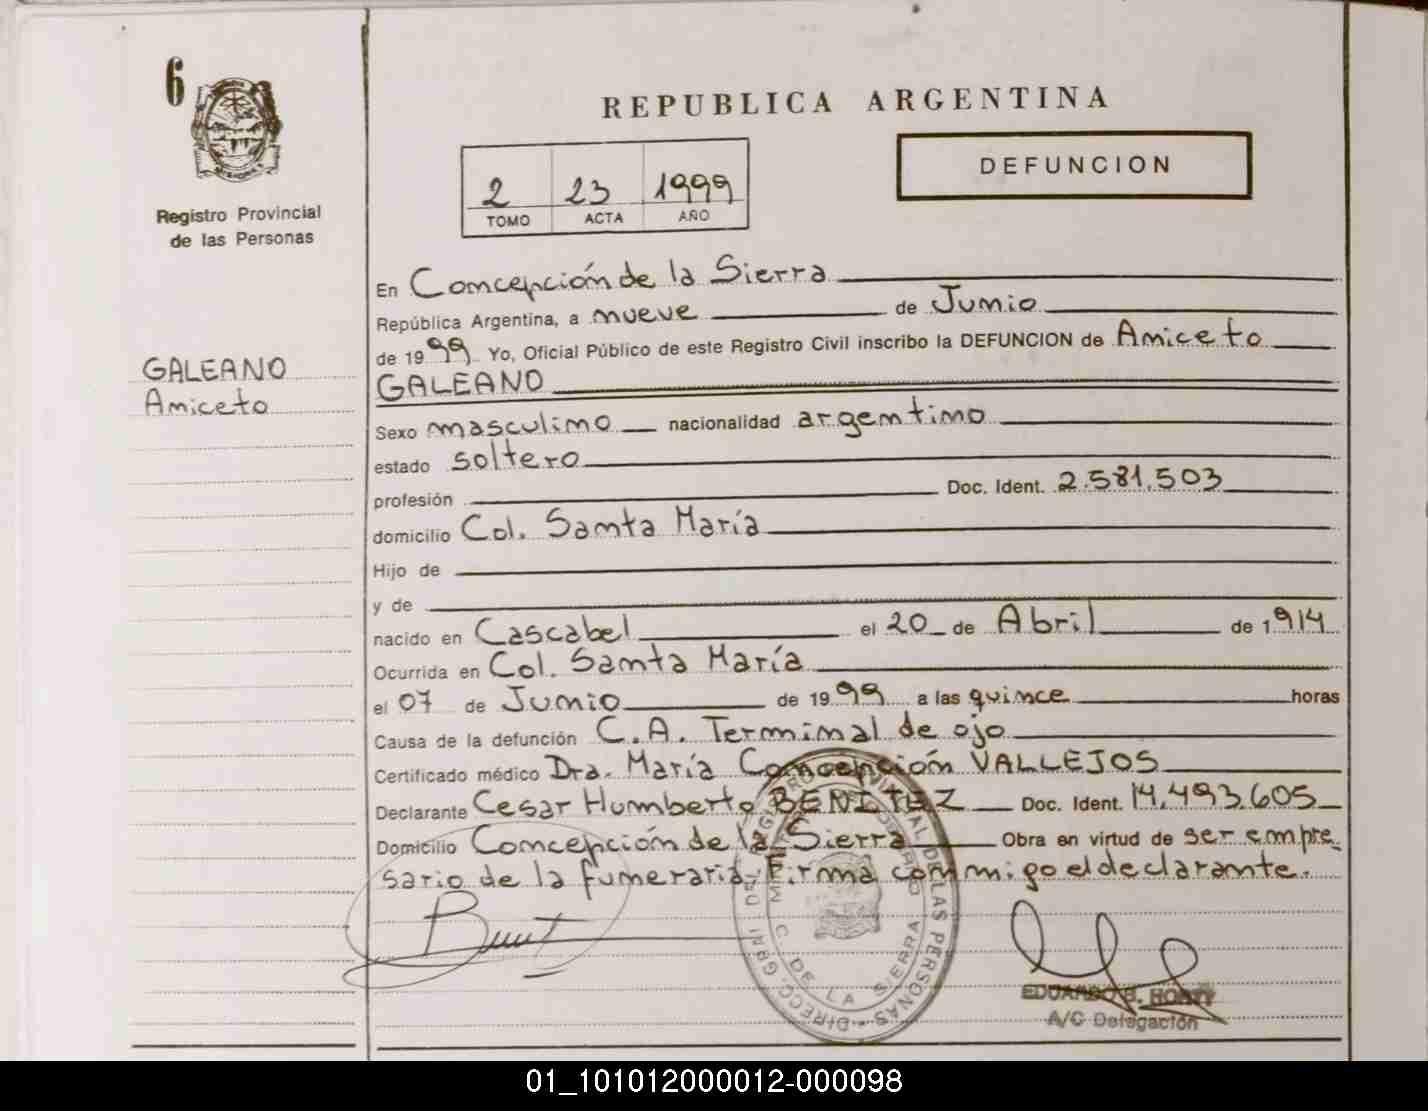 6
Registro Provincial
de las Personas
GALEANO
Aniceto
REPUBLICA ARGENTINA
2 23 1999
TOMO ACTA AÑO
DEFUNCION
En Concepción de la Sierra
República Argentina, a nueve de Junio
de 1999 Yo, Oficial Público de este Registro Civil inscribo la DEFUNCION de Aniceto
GALEANO
Sexo masculino nacionalidad argentino
estado soltero
profesión Doc. Ident. 2.581.503
domicilio Col. Santa María
Hijo de
y de
nacido en Cascabel el 20 de Abril de 1914
Ocurrida en Col. Santa María
el 07 de Junio de 1999 a las quince horas
Causa de la defunción C.A. Terminal de ojo
Certificado médico Dra. María Concepción VALLEJOS
Declarante Cesar Humberto BENITEZ Doc. Ident. 14.493.605
Domicilio Concepción de la Sierra Obra en virtud de ser empre-
sario de la funeraria, Firma conmigo el declarante.
DE LAS PERSONAS
C. DE LA SIERRA
EDUARDO B.
A/C Delegación
01_101012000012-000098